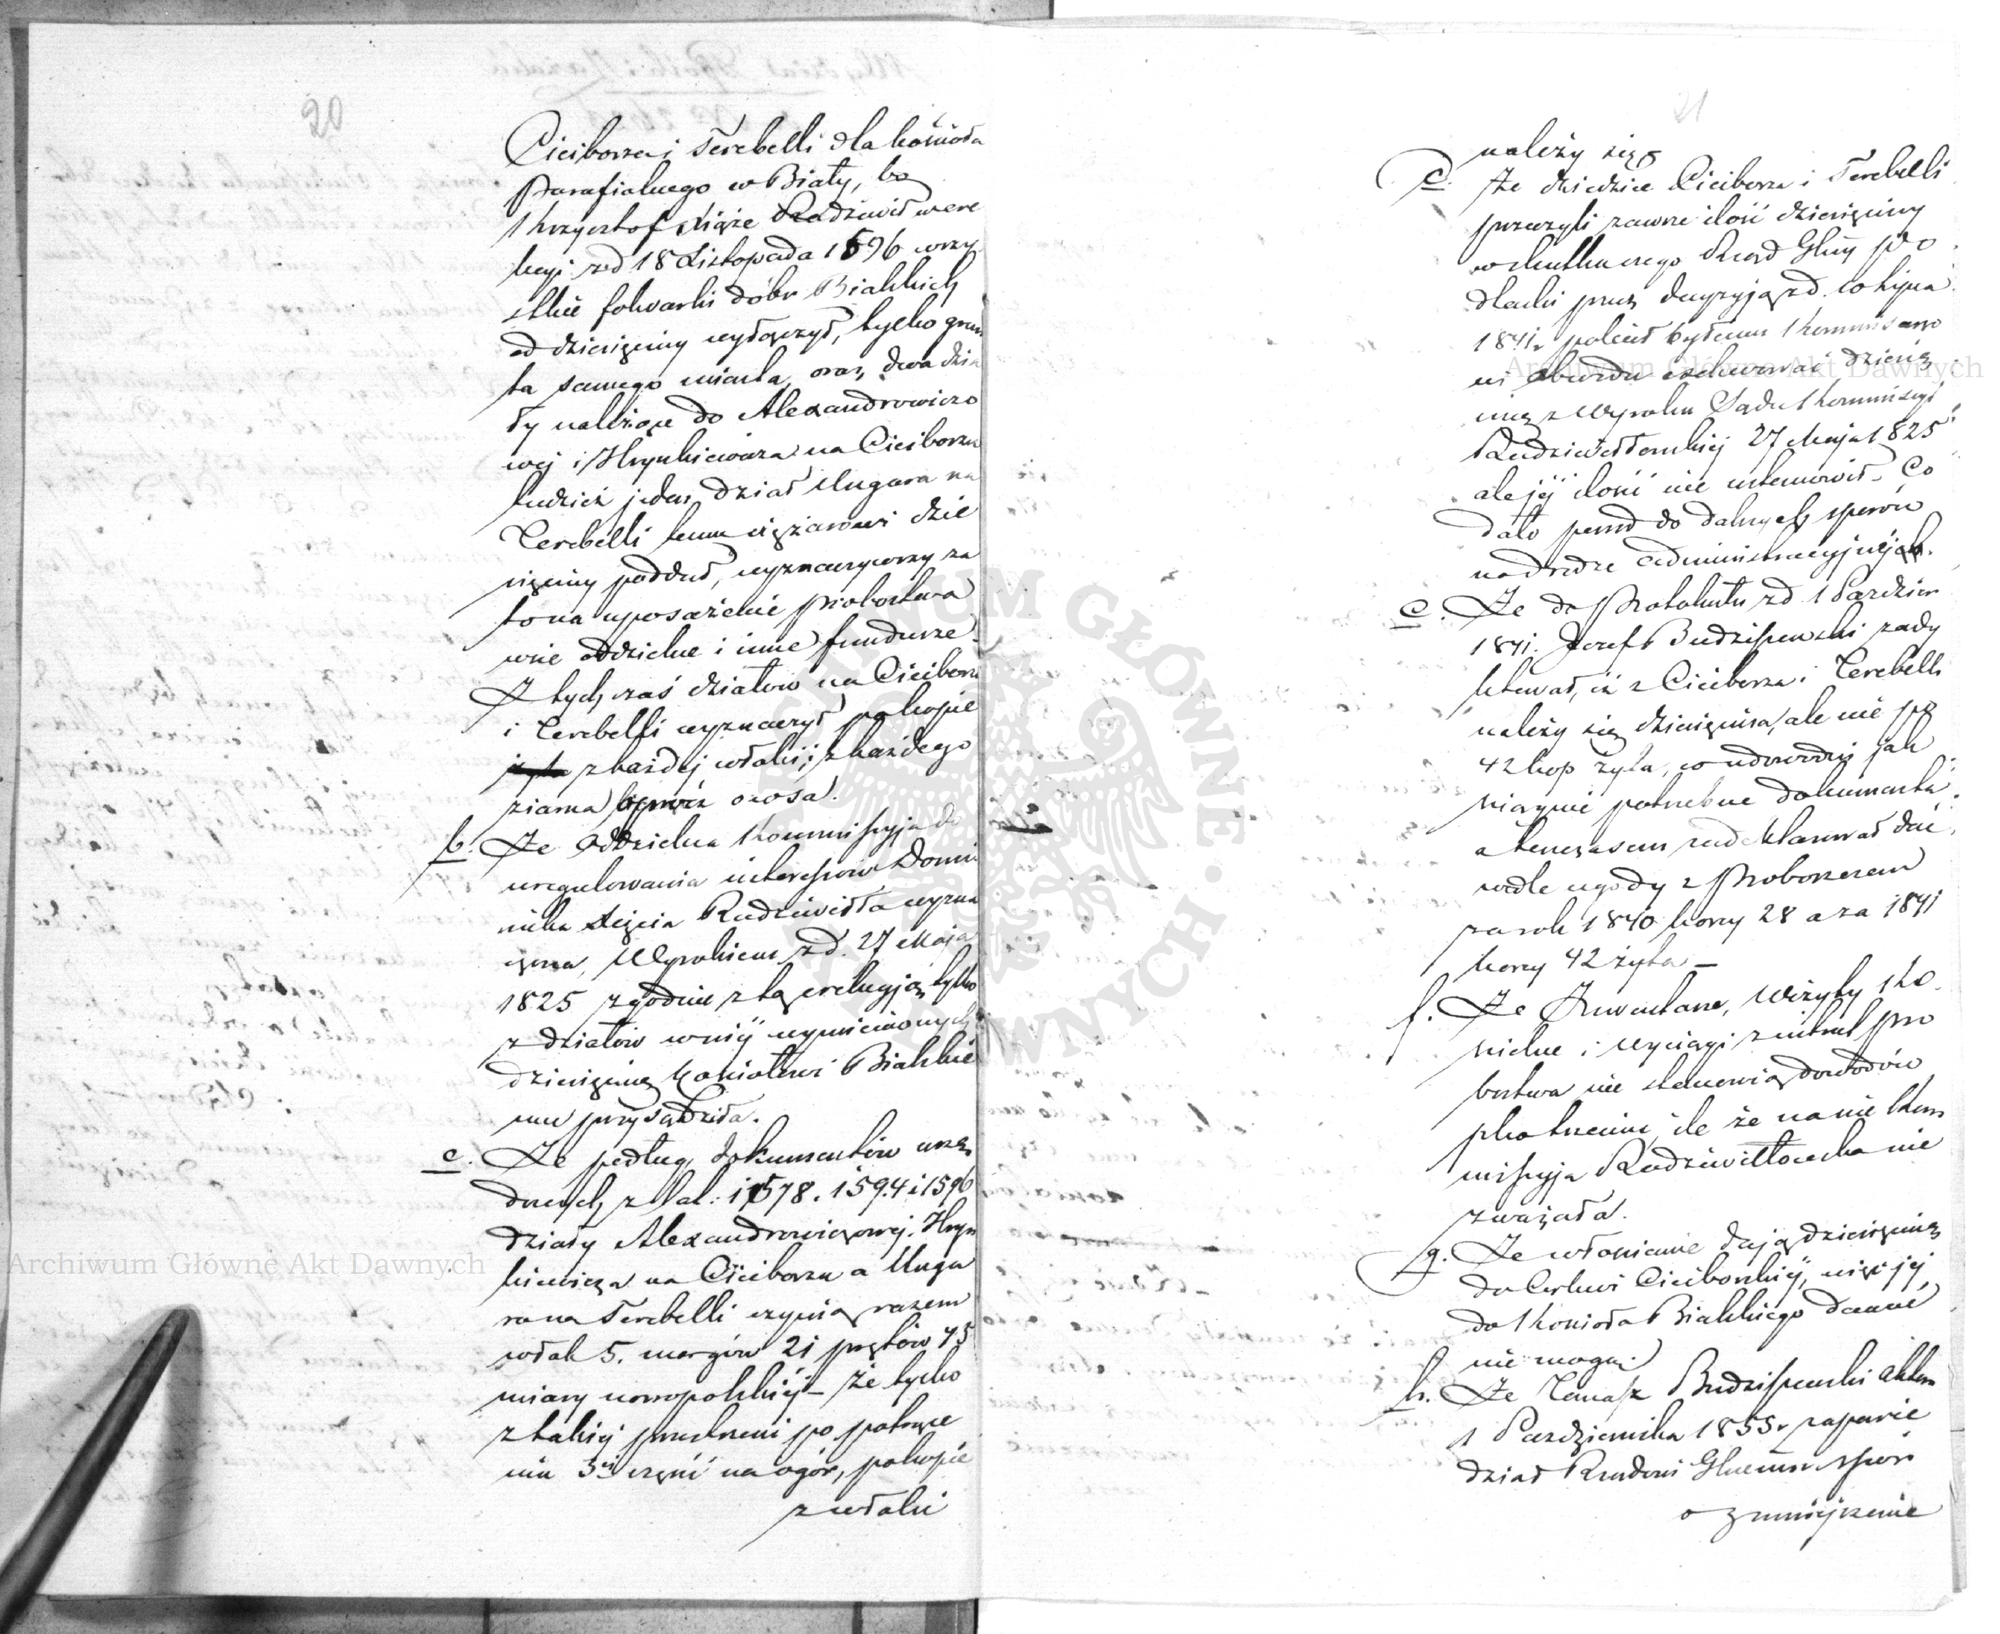 20
Ciciborza i Terebelli dla kościoła
Parafialnego w Biały, bo
Krzysztof Xiąże Radziwił w ere
kcyi z d 18 Listopada 1596 wszy
stkie folwarki dóbr Bialskich
od dziesięciny wyłączył, tylko grun
ta samego miasta, oraz dwa dzia
ły należące do Alexandrowiczo
wej i Hrynkiewicza na Ciciborzu
tudzież jeden dział Ungara na
Terebelli temu ciężarowi dzie
sięciny poddał, wyznaczywszy za
to na uposażenie Probostwa
wsie oddzielne i inne fundusze.
Z tych zaś działów na Ciciborzu
i Terebelli wyznaczył po kopie
z każdej włóki, z każdego
ziarna oprócz owsa.
b. Że oddzielna Kommissyja do
uregulowania interessów Domi
nika Xięcia Radziwiłła wyzna
czona, Wyrokiem z d. 27 Maja
1825 zgodnie z tą erekcyją tylko
z działów w niéj wymienionych
dziesięcinę kościołowi Bialskie
mu przysądziła.
c. Że podług dokumentów urzę
dowych z lat: 1578. 1594 i 1596
działy Alexandrowiczowej, Hryn
kiewicza na Ciciborzu a Unga
ra na Terebelli czynią razem
włók 5. morgów 21 prętów 45
miary nowopolskiéj – że tylko
z takiéj przestrzeni po potrące
niu 3ej części na ugór, po kopie
z włóki
21
należy się
d. Że dziedzice Ciciborza i Terebelli
przeczyli zawsze ilość dziesięciny
w skutku czego Rząd Głny Po
dlaski przez decyzyją z d. 20 Lipca
1841r polecił byłemu Kommissarzo
wi Obwodu exekwować dziesię
cinę z Wyroku Sądu Kommissyi
Radziwiłłowskiéj 27 Maja 1825
ale jéj ilość nie ustanowił. Co
dało powód do dalszych sporów
na drodze administracyjnéj.
e. Że do Protokułu z d 1 Paździer
1841. Józef Budziszewski zady
ktował, iż z Ciciborza i Terebelli
należy się dziesięcina, ale nie po
42 kop żyta, co udowodni jak
ściągnie potrzebne dokumenta
a tymczasem zadeklarował dać
wedle ugody z Proboszczem
za rok 1840 korcy 28 a za 1841
korcy 42 żyta –
f. Że Inwentarze, Wizyty Ko
ścielne i wyciągi z intrat pro
bostwa nie stanowią dowodów
ile że na nie Kom
missyja Radziwiłłowska nie
zważała.
g. Że włościanie dają dziesięcinę
do Cerkwi Ciciborskiéj, więc jéj
do Kościoła Bialskiego dawać
nie mogą.
h. Że Tomasz Budziszewski aktem
1 Października 1855r zapowie
dział Rządowi Głnemu spór
o zmniejszenie
Archiwum Główne Akt Dawnych
Archiwum Główne Akt Dawnych
ARCHIWUM GŁÓWNE AKT DAWNYCH